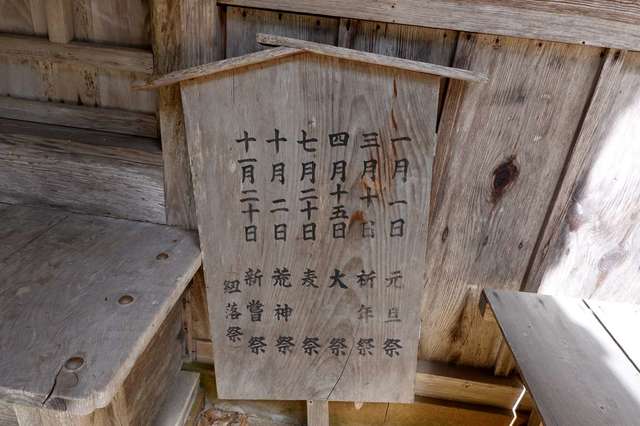 一月一日 元旦祭
三月十日 祈年祭
四月十五日 大祭
七月二十日 麦祭
十月二日 荒神祭
十一月二十日 新嘗祭
紐落祭